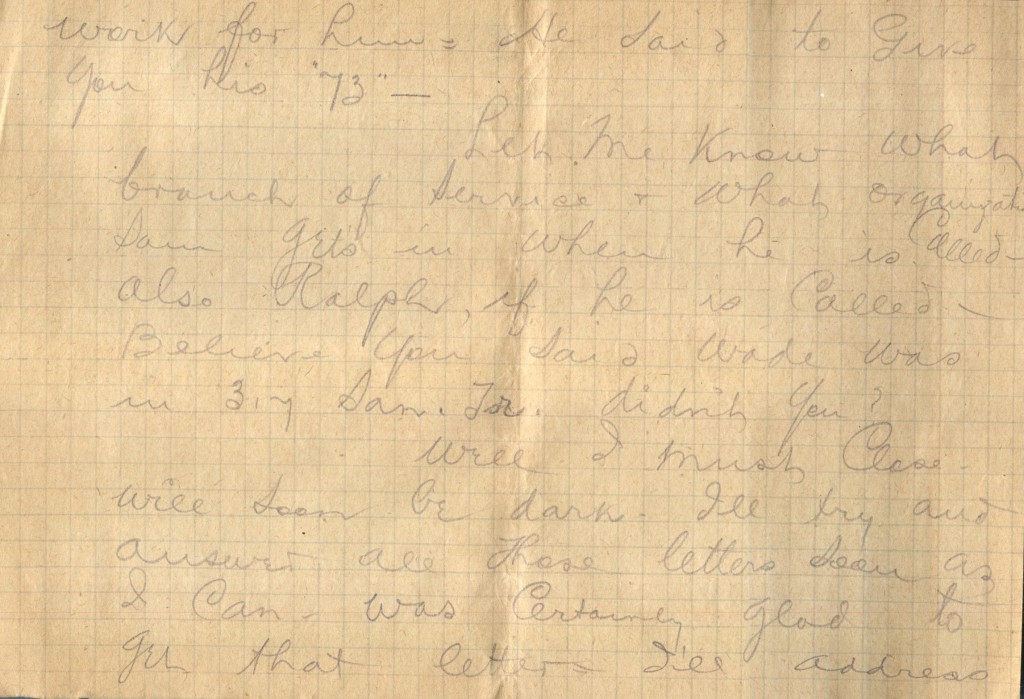 work for him - He said to Give
You his "73" —
Let Me Know What
branch of Service + What organizat
Sam Gets in When he is Called -
also Ralph, if he is Called -
Believe You Said Wade was
in 317 San. Tr. didn't You?
Well I Must Close -
Will Soon be dark - I'll try and
answer all those letters Soon as
I Can - Was Certainly glad to
Get that letter - I'll address